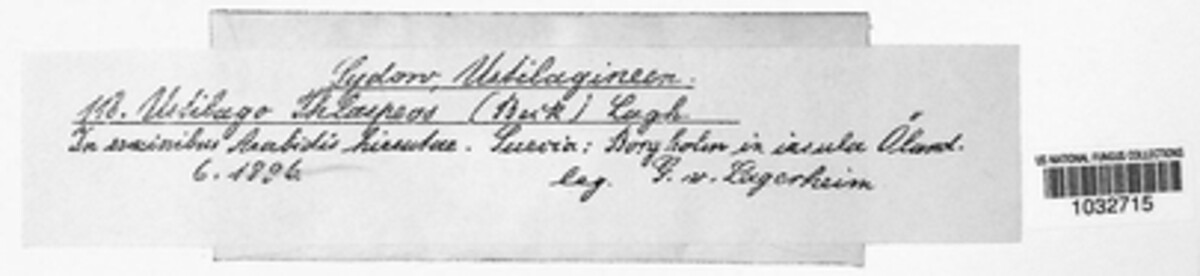 Sydow, Ustilagineen.
Ustilago Thlaspeos (Beck) Lagh.
In seminibus Arabidis hirsutae. Suecia: Borgholm in insula Öland.
6. 1896
leg. G. v. Lagerheim
US NATIONAL FUNGUS COLLECTIONS
1032715